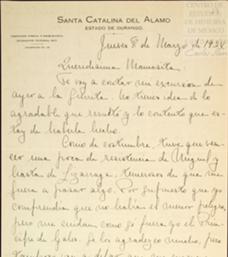 SANTA CATALINA DEL ALAMO
ESTADO DE DURANGO.
CENTRO DE
ESTUDIOS
DE HISTORIA
DE MEXICO
Jueves 8 de Marzo de 1928
Queridísima Mamasita
Te voy a contar mi excursion de
ayer a la Peñita. No tienes idea de lo
agradable que resultó y lo contento que es-
toy de haberla hecho.
Como de costumbre, tuve que ven-
cer una poca de resistencia de Miguel y
hasta de Lizarraga, temerosos de que me
fuera a pasar algo. Por supuesto que yo
comprendia que no habia el menor peligro,
pero me cuidan como si fuera yo el Prin-
cipe de Gales. Se los agradezco mucho, pero